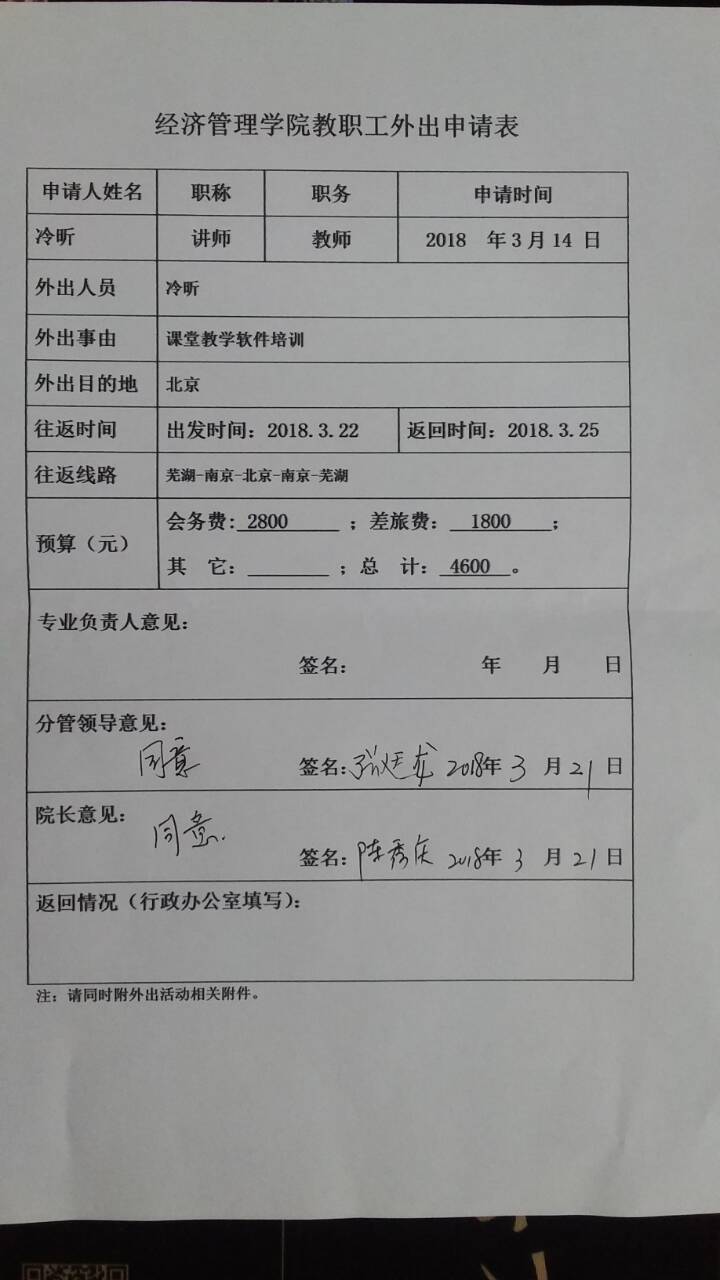 经济管理学院教职工外出申请表
申请人姓名 职称 职务 申请时间
冷昕 讲师 教师 2018 年 3 月 14 日
外出人员 冷昕
外出事由 课堂教学软件培训
外出目的地 北京
往返时间 出发时间：2018.3.22 返回时间：2018.3.25
往返线路 芜湖-南京-北京-南京-芜湖
预算（元） 会务费：2800 ；差旅费： 1800 ；
其 它： ；总 计： 4600 。
专业负责人意见：
签名： 年 月 日
分管领导意见：
同意 签名：张廷龙 2018年 3 月 21 日
院长意见：
同意. 签名：陈秀庆 2018年 3 月 21 日
返回情况（行政办公室填写）：
注：请同时附外出活动相关附件。